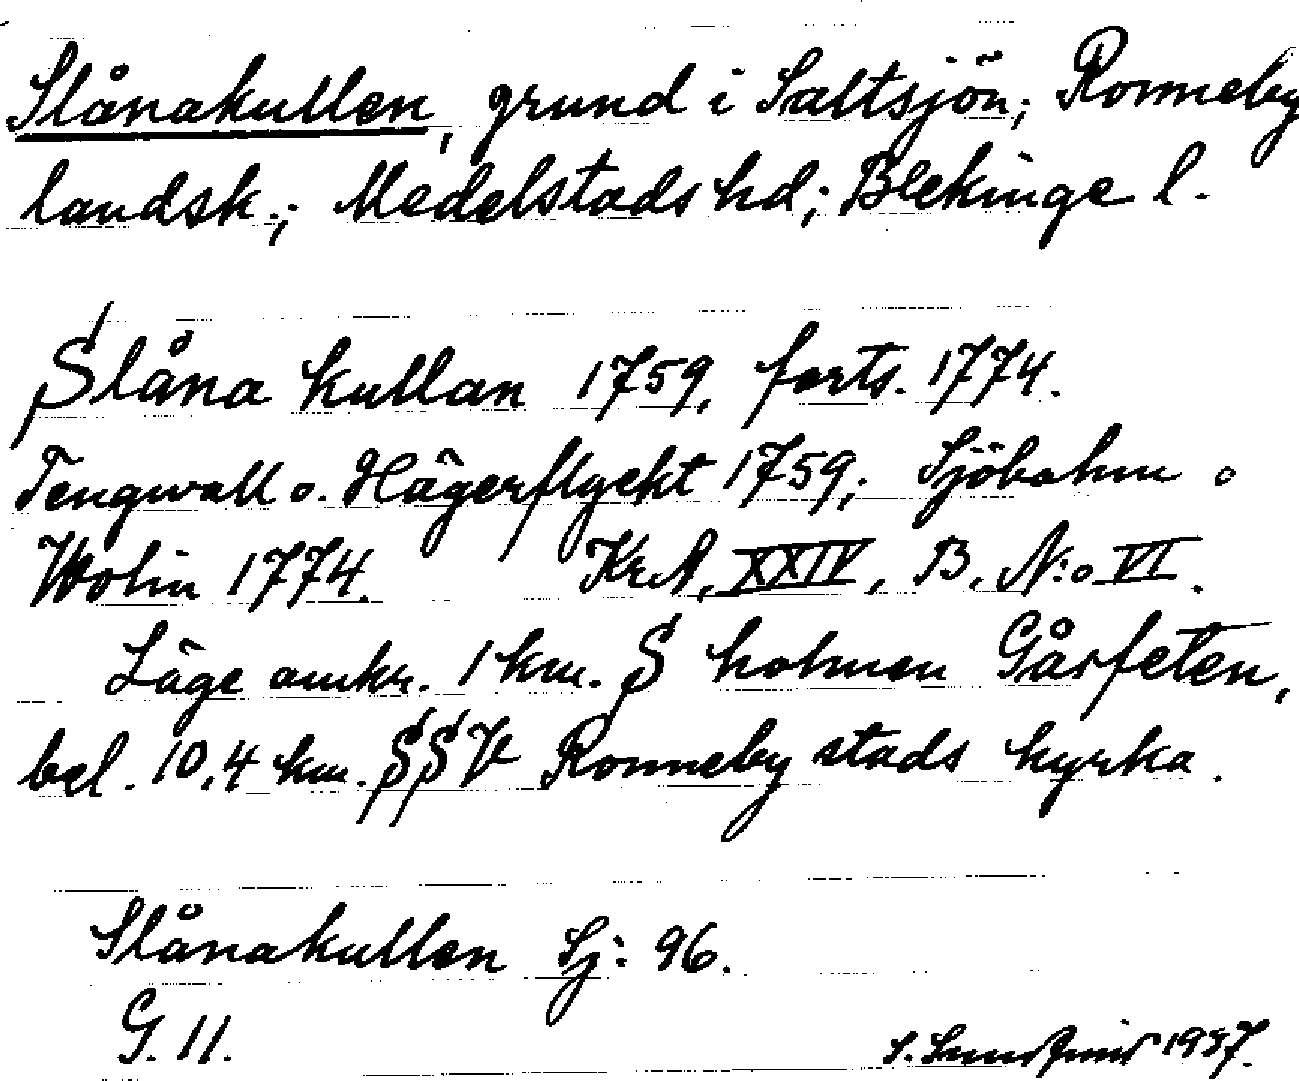 Slånakullen, grund i Saltsjön; Ronneby
landsk.; Medelstads hd; Blekinge l.
Slåna kullan 1759, forts. 1774.
Tengwall o. Hägerflyckt 1759; Sjöbohm o
Wolin 1774. KrA, XXIV, B, N:o VI.
Läge omkr. 1 km. S holmen Gåsfeten,
bel. 10,4 km. SSV Ronneby stads kyrka.
Slånakullen Sj: 96.
G. 11.
S. 1937.